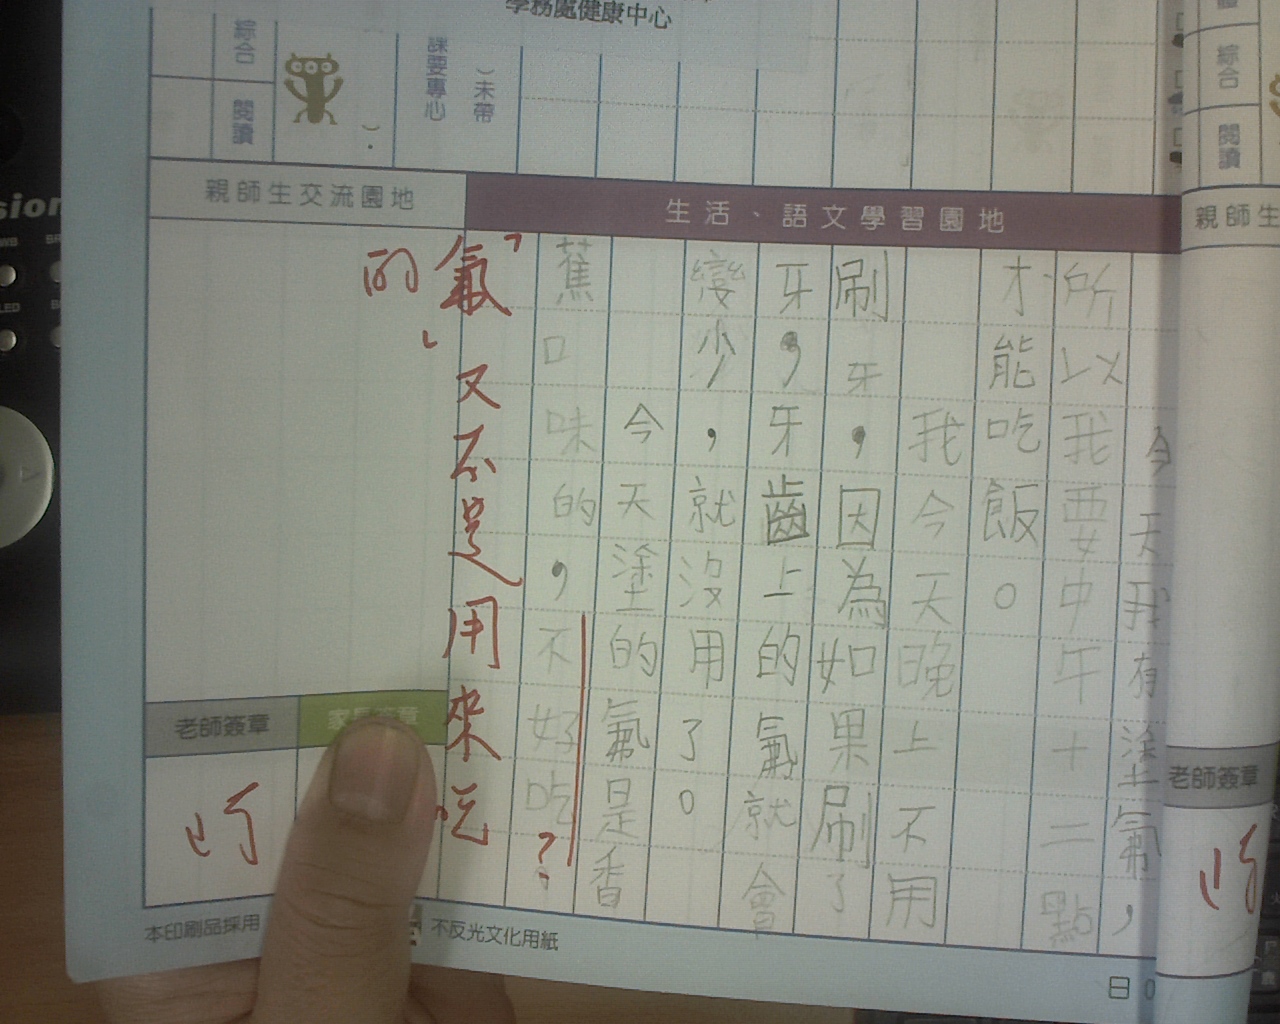 學務處健康中心
綜合
閱讀
課要專心
︶未帶
綜合
閱讀
親師生交流園地
生活、語文學習園地
親師生
今天我有塗氟，
所以我要中午十二點
才能吃飯。
我今天晚上不用
刷牙，因為如果刷了
牙，牙齒上的氟就會
變少，就沒用了。
今天塗的氟是香
蕉口味的，不好吃。
?
氟，又不是用來吃
的、
老師簽章
老師簽章
本印刷品採用
不反光文化用紙
日